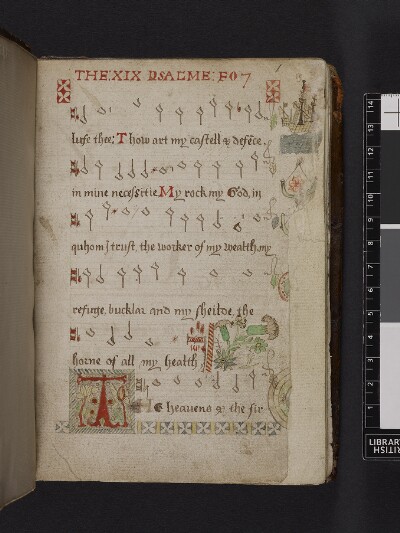 THE XIX PSALME: FO 7
lufe thee; Thow art my castell & defēce,
in mine necessitie My rock my God, in
quhom I trust, the worker of my wealth, my
refuge, bucklar and my sheilde, the
horne of all my health
THe heavens & the fir
14
13
12
11
10
9
8
7
6
5
4
3
2
1
LIBRARY
BRITISH